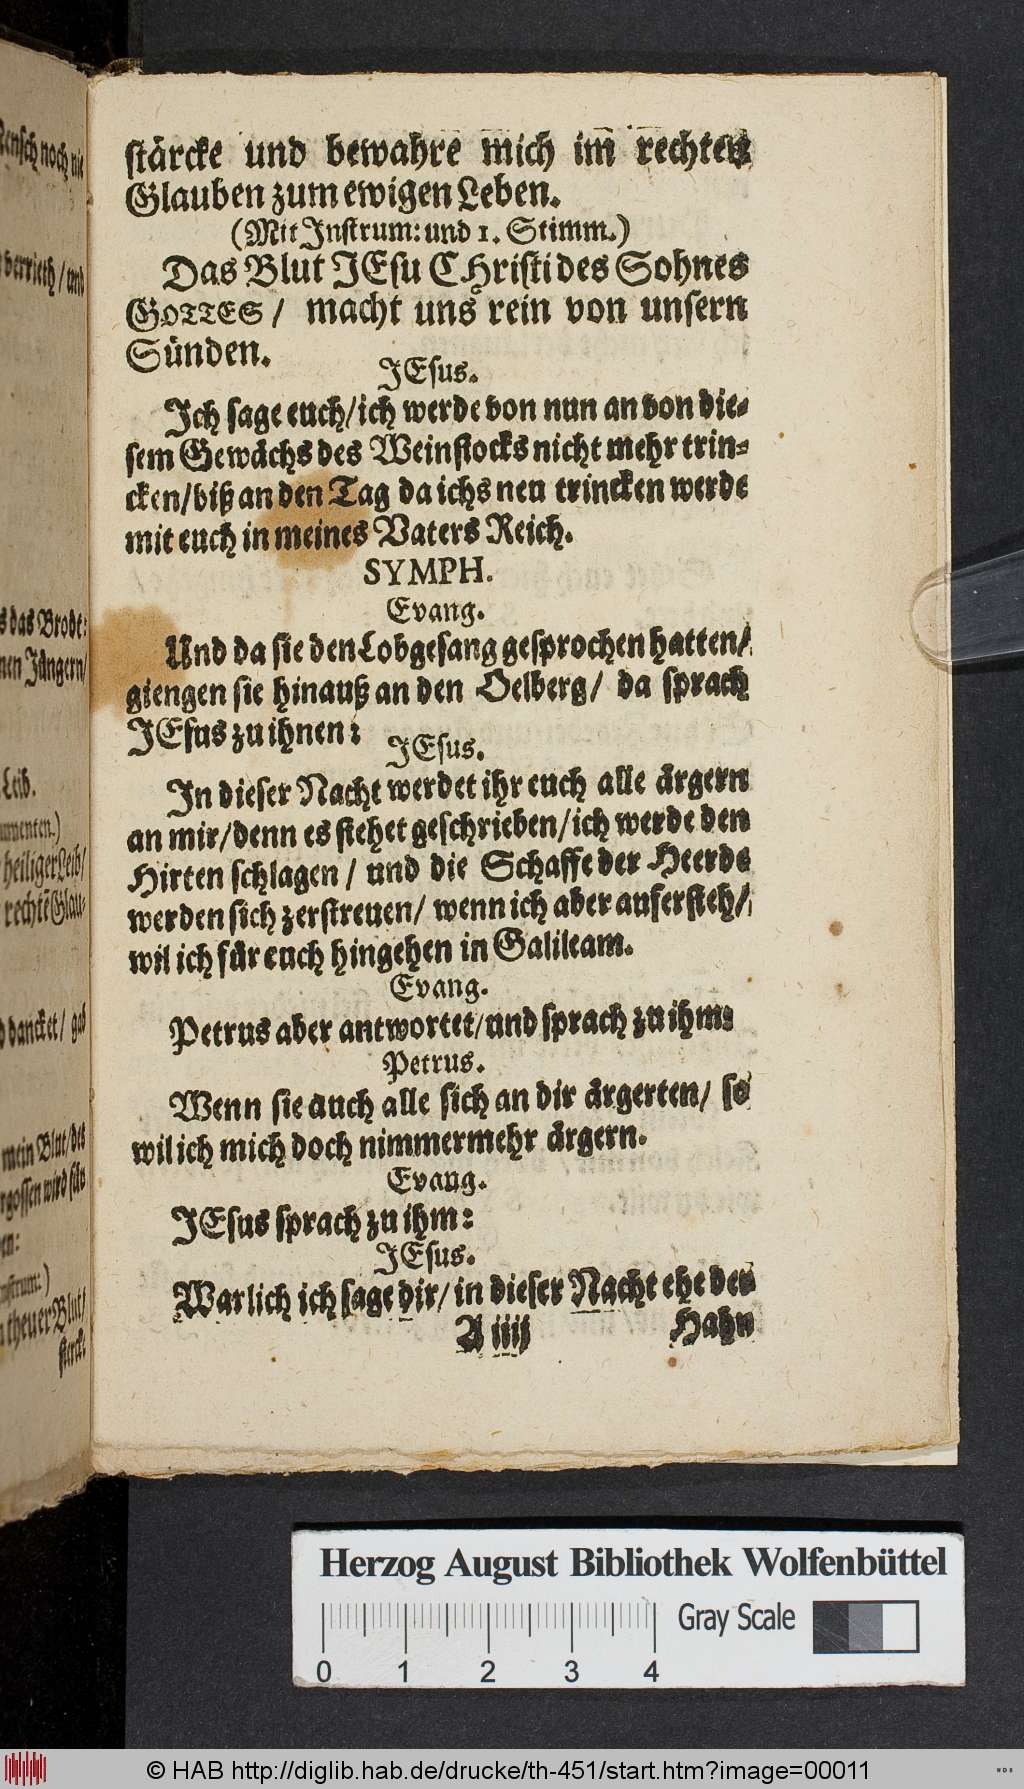 Rensch noch nie
verrieth / und
s das Brodt:
nen Jüngern/
Leib.
umenten.)
heiliger Leib/
rechtē Glau-
d dancket / gab
mein Blut / des
rgossen wird für
en:
nstrum:)
theuer Blut/
stercke
stärcke und bewahre mich im rechten
Glauben zum ewigen Leben.
(Mit Instrum: und 1. Stimm.)
Das Blut JEsu CHristi des Sohnes
GOTTES / macht uns rein von unsern
Sünden.
JEsus.
Ich sage euch/ich werde von nun an von die-
sem Gewächs des Weinstocks nicht mehr trin-
cken/biß an den Tag da ichs neu trincken werde
mit euch in meines Vaters Reich.
SYMPH.
Evang.
Und da sie den Lobgesang gesprochen hatten/
giengen sie hinauß an den Oelberg/ da sprach
JEsus zu ihnen:
JEsus.
In dieser Nacht werdet ihr euch alle ärgern
an mir/denn es stehet geschrieben/ich werde den
Hirten schlagen / und die Schaffe der Heerde
werden sich zerstreuen/ wenn ich aber aufersteh/
wil ich für euch hingehen in Galileam.
Evang.
Petrus aber antwortet/und sprach zu ihm:
Petrus.
Wenn sie auch alle sich an dir ärgerten/ so
wil ich mich doch nimmermehr ärgern.
Evang.
JEsus sprach zu ihm:
JEsus.
Warlich ich sage dir/ in dieser Nacht ehe der
A iiij Hahn
Herzog August Bibliothek Wolfenbüttel
Gray Scale
0 1 2 3 4
© HAB http://diglib.hab.de/drucke/th-451/start.htm?image=00011